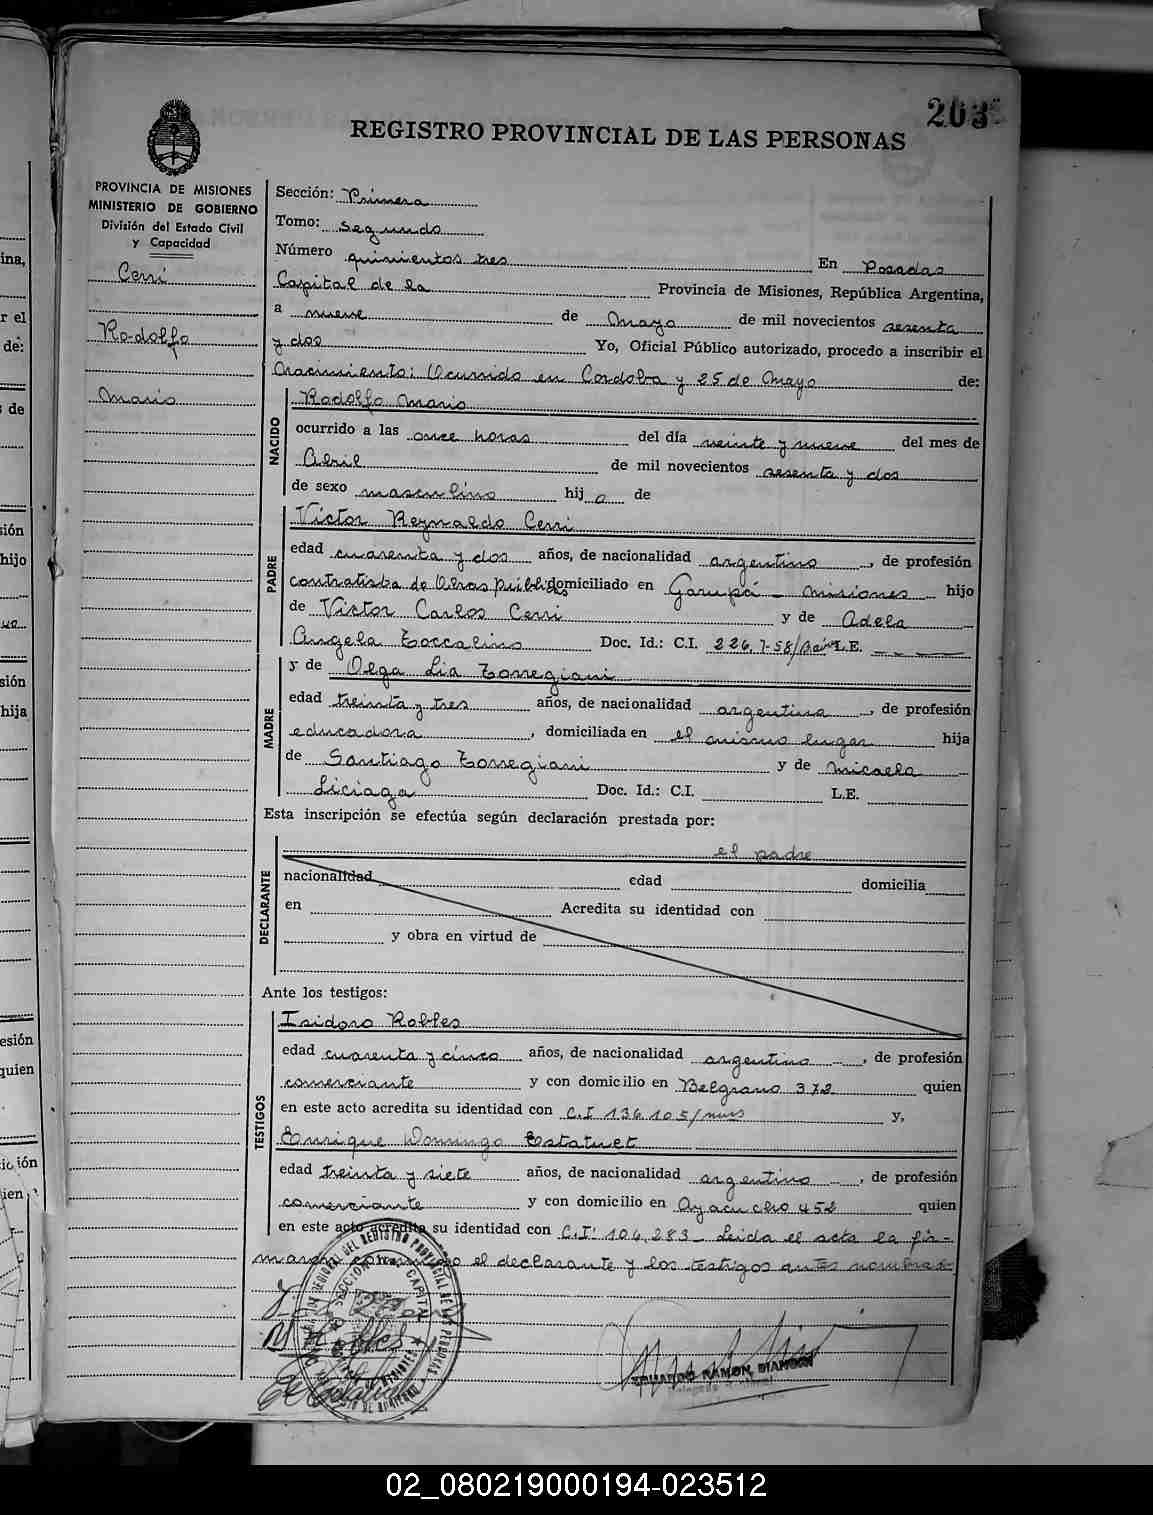 203
REGISTRO PROVINCIAL DE LAS PERSONAS
PROVINCIA DE MISIONES
MINISTERIO DE GOBIERNO
División del Estado Civil
y Capacidad
Cerri
Rodolfo
Mario
Sección: Primera
Tomo: Segundo
Número quinientos tres En Posadas
Capital de la Provincia de Misiones, República Argentina,
a nueve de Mayo de mil novecientos sesenta
y dos Yo, Oficial Público autorizado, procedo a inscribir el
Nacimiento: Ocurrido en Cordoba y 25 de Mayo de:
NACIDO
Rodolfo Mario
ocurrido a las once horas del día veinte y nueve del mes de
Abril de mil novecientos sesenta y dos
de sexo masculino hijo de
PADRE
Victor Reynaldo Cerri
edad cuarenta y dos años, de nacionalidad argentino, de profesión
contratista de Obras públicas domiciliado en Garupá - Misiones hijo
de Victor Carlos Cerri y de Adela
Angela Zoccalino Doc. Id.: C.I. 226.758/ L.E.
MADRE
y de Olga Lia Torregiani
edad treinta y tres años, de nacionalidad argentina, de profesión
educadora, domiciliada en el mismo lugar hija
de Santiago Torregiani y de Micaela
Liciaga Doc. Id.: C.I. L.E.
Esta inscripción se efectúa según declaración prestada por:
DECLARANTE
el padre
nacionalidad edad domicilia
en Acredita su identidad con
y obra en virtud de
Ante los testigos:
TESTIGOS
Isidoro Robles
edad cuarenta y cinco años, de nacionalidad argentino, de profesión
comerciante y con domicilio en Belgrano 372 quien
en este acto acredita su identidad con C.I 136.105/mnes y,
Enrique Domingo Estatuet
edad treinta y siete años, de nacionalidad argentino, de profesión
comerciante y con domicilio en Ayacucho 452 quien
en este acto acredita su identidad con C.I: 104.283 - Leida el acta la fir-
man conmigo el declarante y los testigos antes nombrados
EDUARDO RAMON
02_080219000194-023512